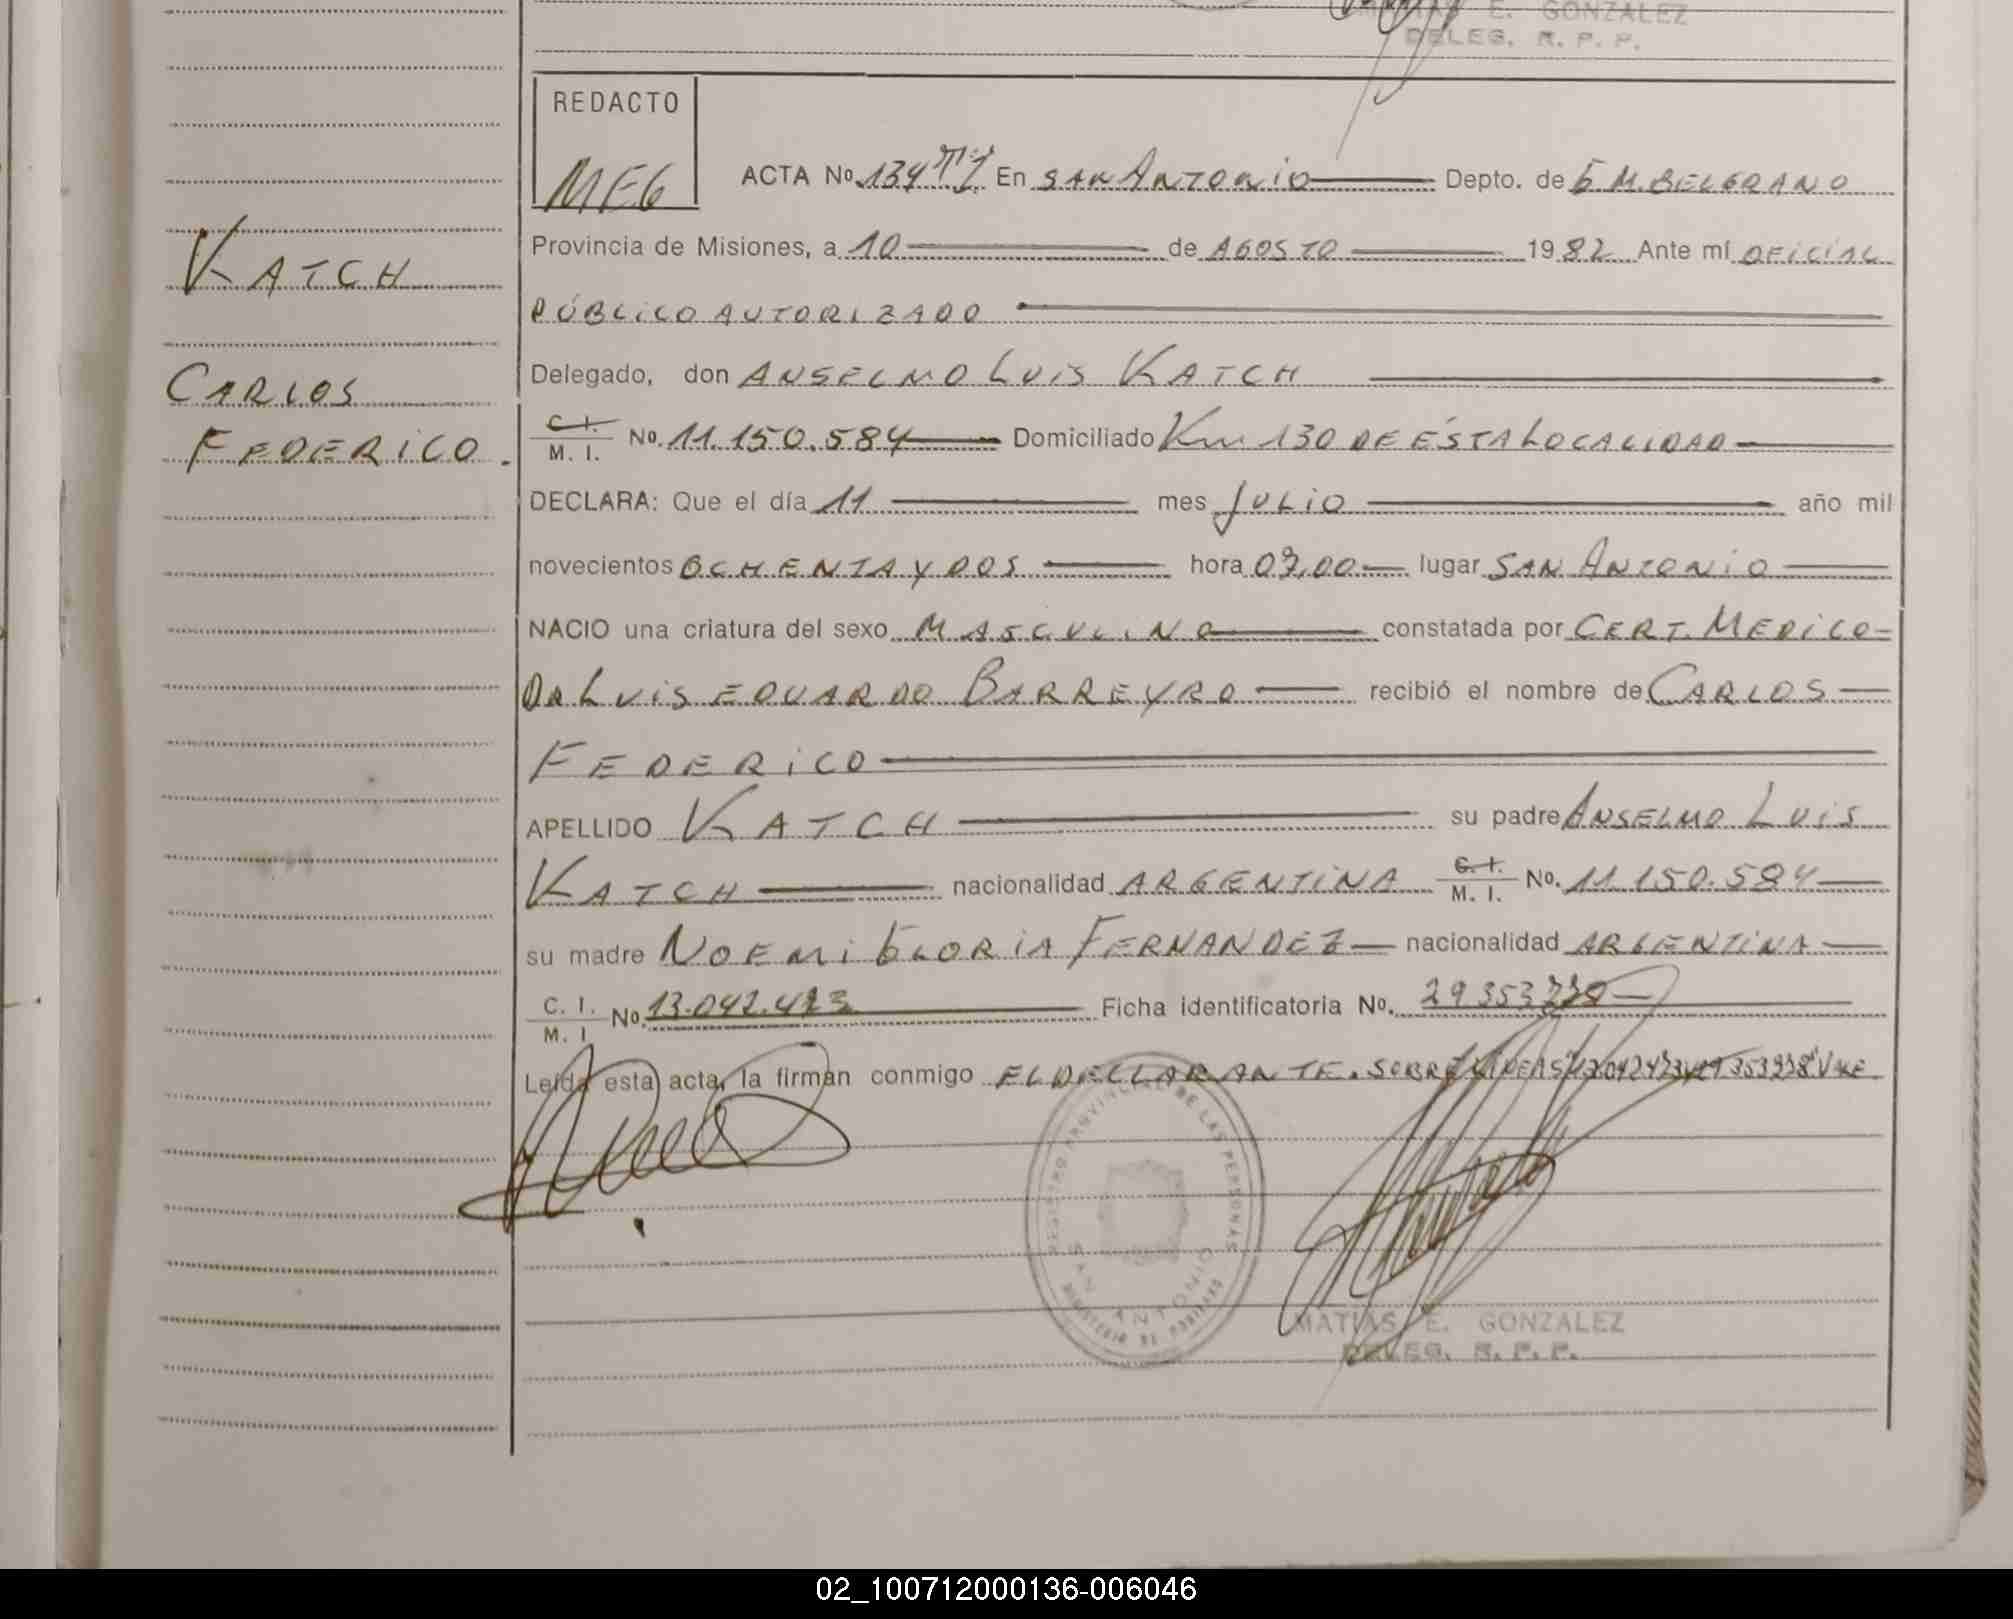 MATIAS E. GONZALEZ
DELEG. R. P. P.
REDACTO
MEG
ACTA No. 134 TºI En SAN ANTONIO Depto. de G M. BELGRANO
Provincia de Misiones, a 10 de AGOSTO 1982 Ante mí OFICIAL
PÚBLICO AUTORIZADO
KATCH
CARLOS
FEDERICO.
Delegado, don ANSELMO LUIS KATCH
C. I.
M. I. No. 11.150.584 Domiciliado Km 130 DE ÉSTA LOCALIDAD
DECLARA: Que el día 11 mes JULIO año mil
novecientos OCHENTA Y DOS hora 07,00 lugar SAN ANTONIO
NACIO una criatura del sexo MASCULINO constatada por CERT. MEDICO
DR LUIS EDUARDO BARREYRO recibió el nombre de CARLOS
FEDERICO
APELLIDO KATCH su padre ANSELMO LUIS
KATCH nacionalidad ARGENTINA C. I.
M. I. No. 11.150.584
su madre NOEMI GLORIA FERNANDEZ nacionalidad ARGENTINA
C. I.
M. I No. 13.042.423 Ficha identificatoria No. 29353238
Leída esta acta, la firman conmigo EL DECLARANTE. SOBRE
REGISTRO PROVINCIAL DE LAS PERSONAS
SAN ANTONIO
MINISTERIO DE GOBIERNO
MATIAS E. GONZALEZ
DELEG. R. P. P.
02_100712000136-006046